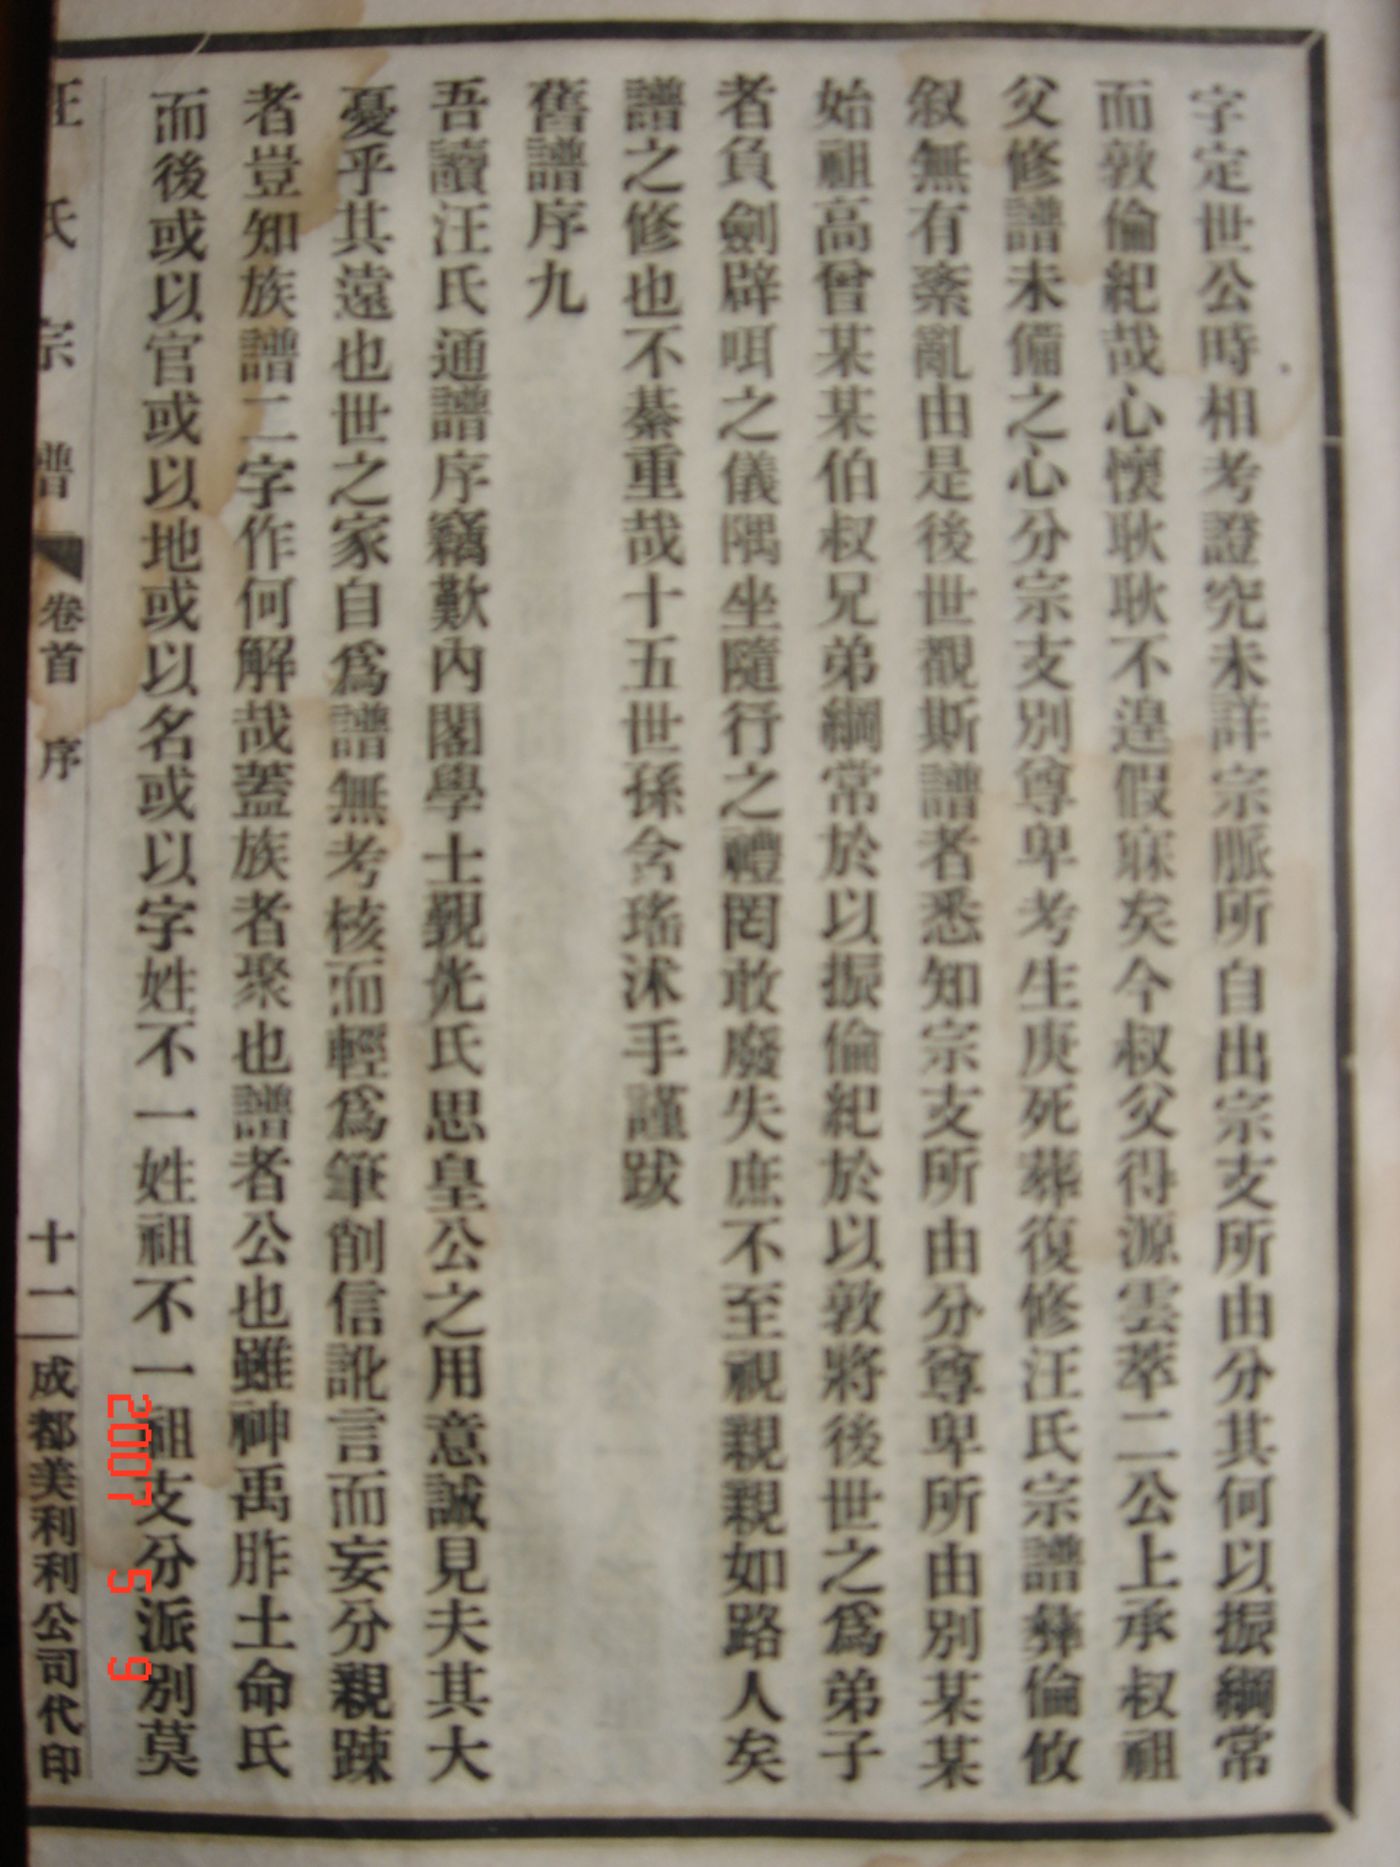 字定世公時相考證究未詳宗脈所自出宗支所由分其何以振綱常
而敦倫紀哉心懷耿耿不遑假寐矣今叔父得源雲萃二公上承叔祖
父修譜未備之心分宗支別尊卑考生庚死葬復修汪氏宗譜彝倫攸
叙無有紊亂由是後世觀斯譜者悉知宗支所由分尊卑所由別某某
始祖高曾某某伯叔兄弟綱常於以振倫紀於以敦將後世之為弟子
者負劍辟咡之儀隅坐隨行之禮罔敢廢失庶不至視親親如路人矣
譜之修也不綦重哉十五世孫含瑤沭手謹跋
舊譜序九
吾讀汪氏通譜序竊歎內閣學士覲光氏思皇公之用意誠見夫其大
憂乎其遠也世之家自為譜無考核而輕為筆削信訛言而妄分親踈
者豈知族譜二字作何解哉蓋族者聚也譜者公也雖神禹胙土命氏
而後或以官或以地或以名或以字姓不一姓祖不一祖支分派別莫
汪氏宗譜 卷首 序 十一 成都美利利公司代印
2007 5 9